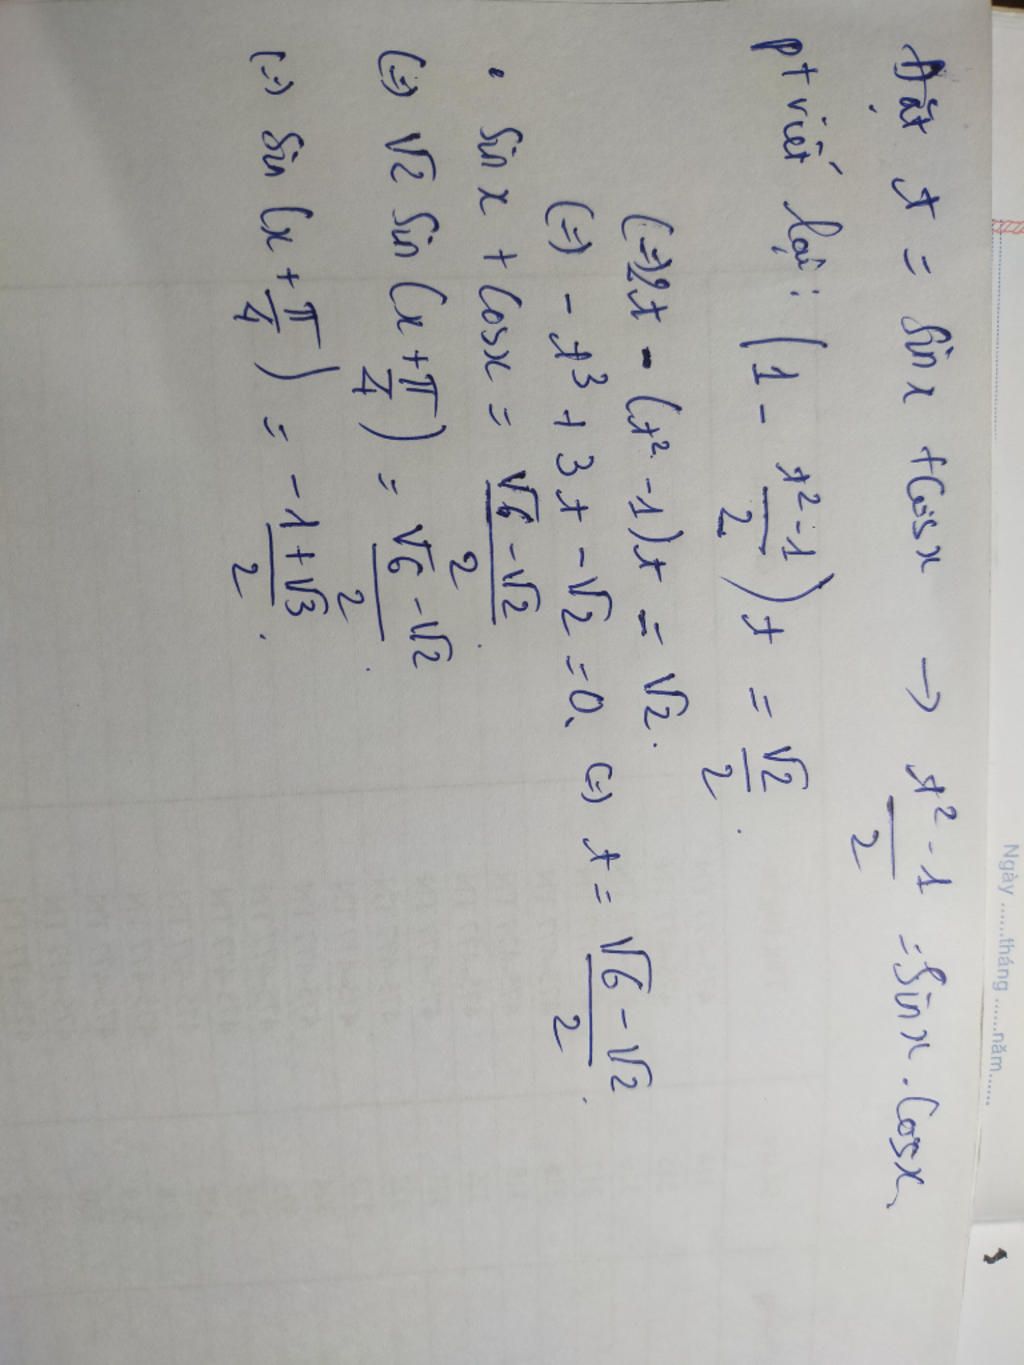 Đặt t = sin x + cos x → t²-1/2 = sin x . cos x
pt viết lại : (1 - t²-1/2) t = √2/2 .
(=) 2t - (t² - 1)t = √2 .
(=) - t³ + 3t - √2 = 0. (=) t = √6 - √2/2 .
• sin x + cos x = √6 - √2/2 .
(=) √2 sin (x + π/4) = √6 - √2/2 .
(=) sin (x + π/4) = -1 + √3/2 .
Ngày ......tháng ......năm......